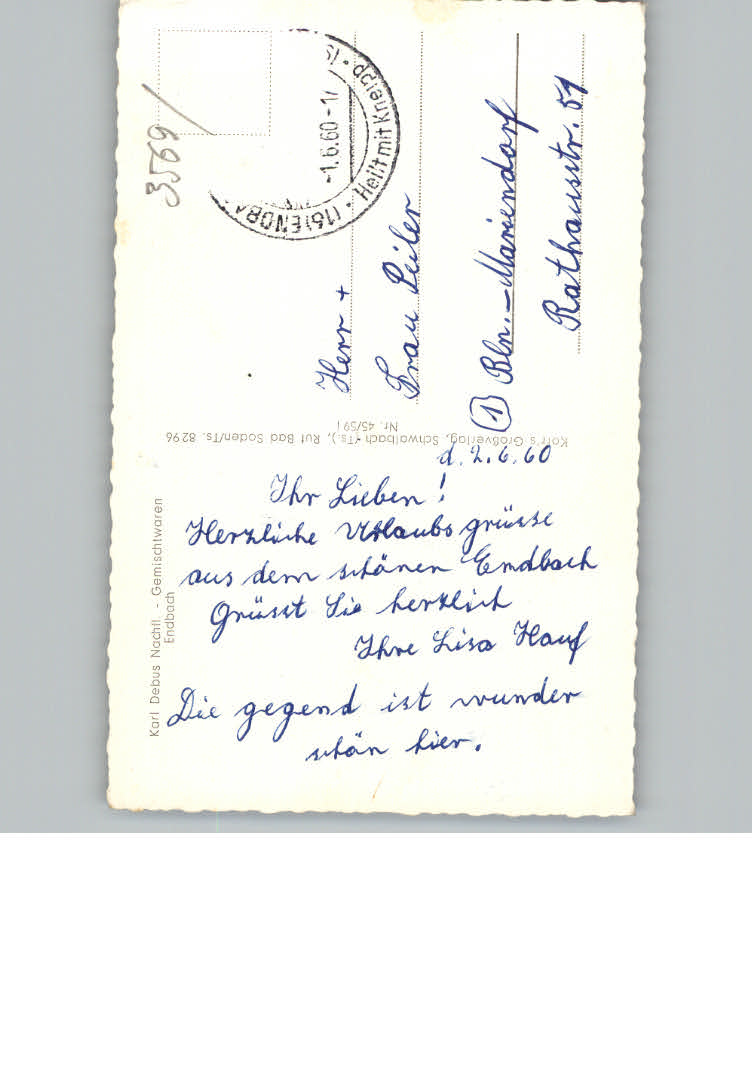 d. 2.6.60
Ihr Lieben!
Herzliche Urlaubsgrüsse
aus dem schönen Emdbach
Grüsst Sie herzlich
Ihre Lisa Hauf
Die gegend ist wunder
schön hier.
Herr +
Frau Peiler
(1) Bln.-Mariendorf
Rathausstr. 51
3569/
(16) ENDBA
-1.6.60-1
Heilt mit Kneipp
Karl Debus Nachfl. - Gemischtwaren
Endbach
Korr's Großverlag, Schwalbach (Ts.), Ruf Bad Soden/Ts. 8296
Nr. 45/59